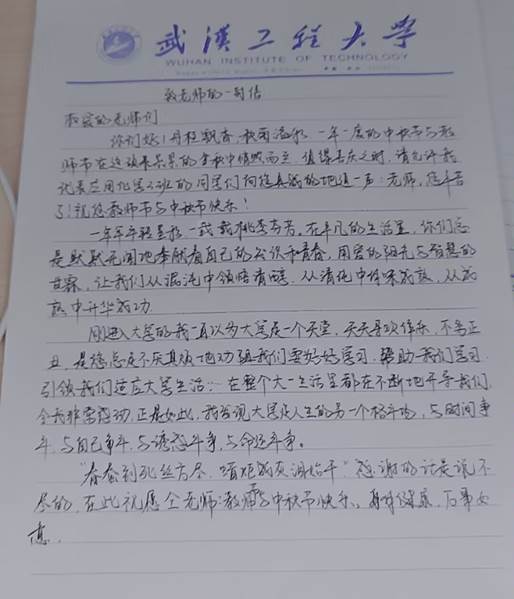 武漢工程大學
WUHAN INSTITUTE OF TECHNOLOGY
致老师的一封信
和爱的老师们
你们好!丹桂飘香,秋菊溢彩,一年一度的中秋节与教
师节在这硕果累累的金秋中悄然而至,值得喜庆之时,请允许我
代表应用化学2班的同学们向您真诚的地道一声:老师,您辛苦
了!祝您教师节与中秋节快乐!
一年年轻盈秋,一载载桃李芳。在平凡的生活里,你们总
是默默无闻地奉献着自己的知识和青春,用爱的阳光与智慧的
甘霖,让我们从混沌中领悟清醒,从清纯中体味成熟,从成
熟中升华成功.
刚进入大学的我一直以为大学是一个天堂,天天喜欢作乐,不务正
业,是您总是不厌其烦地劝强我们要好好学习,帮助我们学习,
引领我们适应大学生活;在整个大一生活里都在不断地开导我们,
令我非常感动,正是如此,我发现大学是人生的另一个格斗场,与时间争
斗,与自己争斗,与诱惑斗争,与命运斗争。
"春蚕到死丝方尽,蜡炬成灰泪始干"感谢的话是说不
尽的,在此祝愿全老师:教师节与中秋节快乐,身体健康,万事如
意.